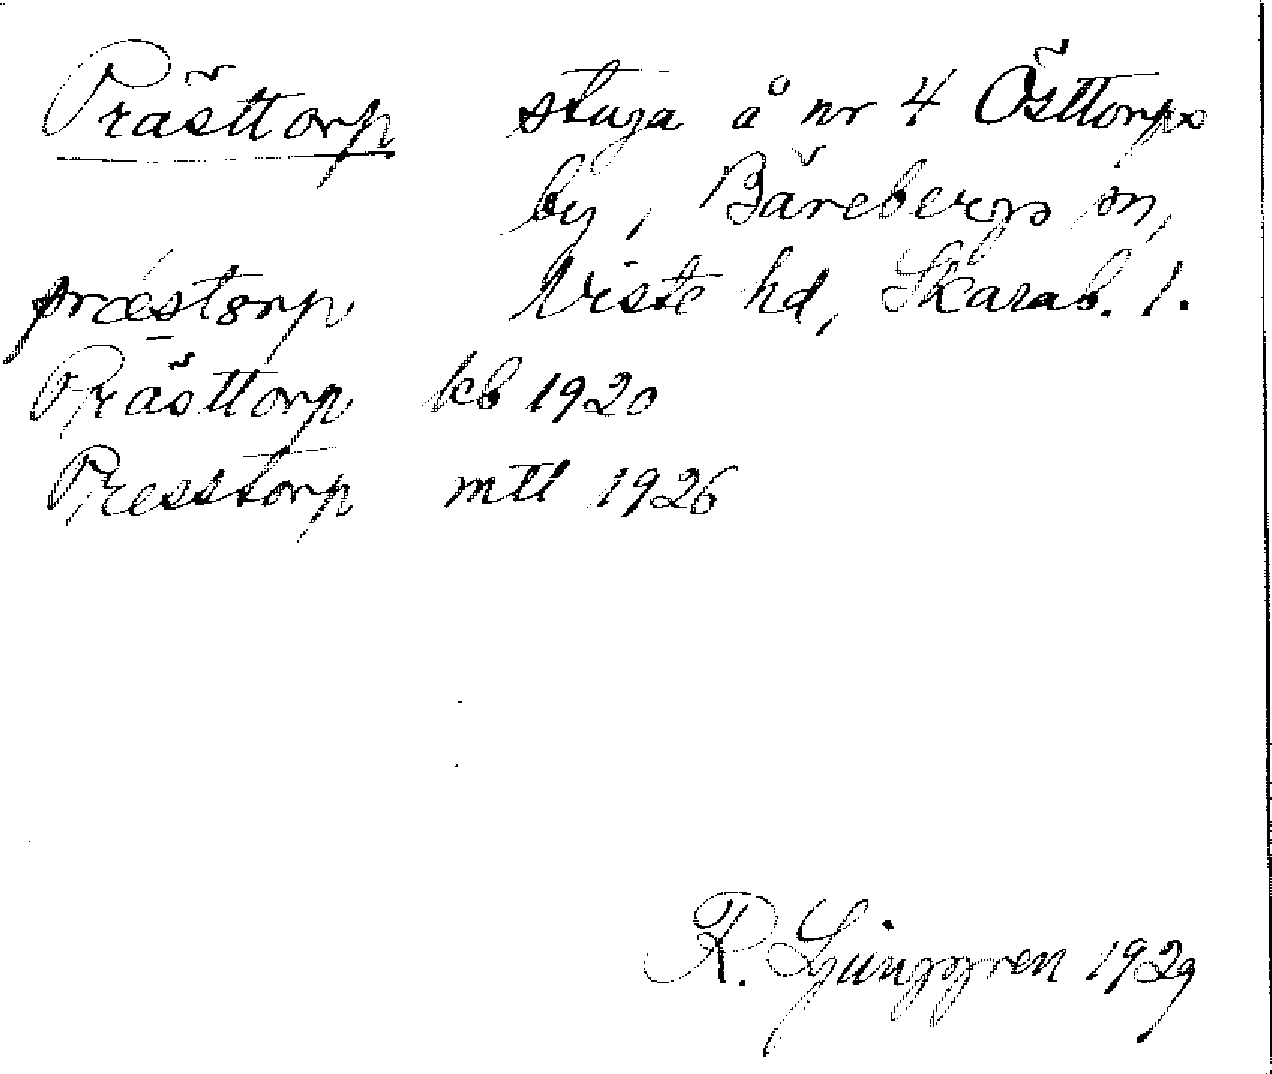 Prästtorp stuga å nr 4 Östtorps
by, Bärebergs sn,
præstorp Viste hd, Skarab. l.
Prästtorp kb 1920
Presstorp mtl 1926
R. Ljunggren 1929